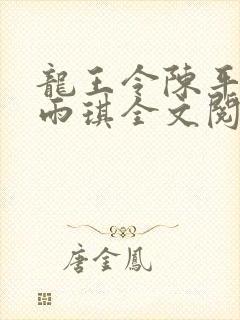 龍王令陳平
雨琪全文閱
唐金鳳